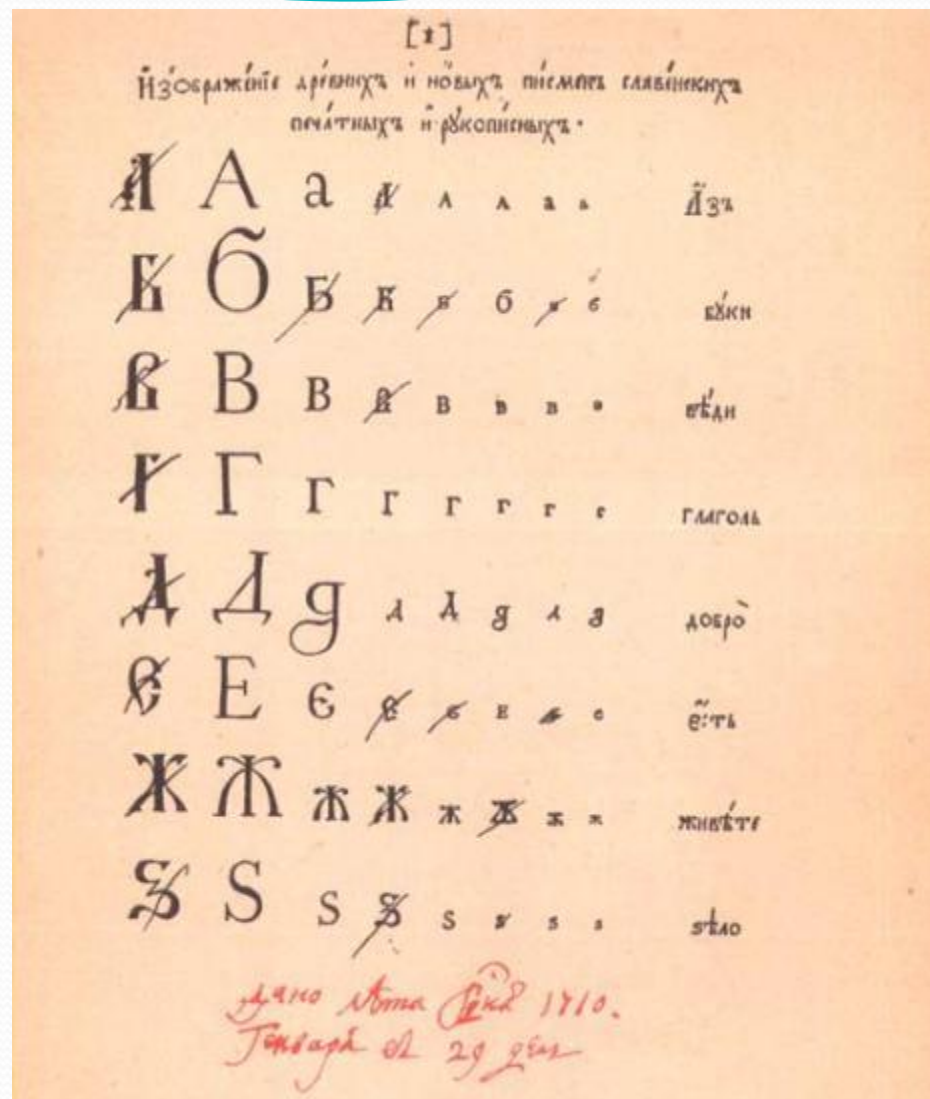 [1]
И҆зѡбраже́нїе дре́внихъ и҆ но́выхъ пи́сменъ славе́нскихъ
печа́тныхъ и҆ рꙋкопи́сныхъ.
А А а А А А а а А҆́зъ
Б б Б Б Б б б б бꙋ́ки
В В В В В В В В вѣ́ди
Г Г Г Г Г Г Г Г глаголь
Д Д д Д Д д Д д добро̀
Є Е є є є Е є є є҆́сть
Ж Ж Ж Ж Ж Ж Ж Ж живѣ́те
Ѕ Ѕ Ѕ Ѕ Ѕ Ѕ Ѕ Ѕ ѕѣло
дано лѣта 1710.
Генваря въ 29 день